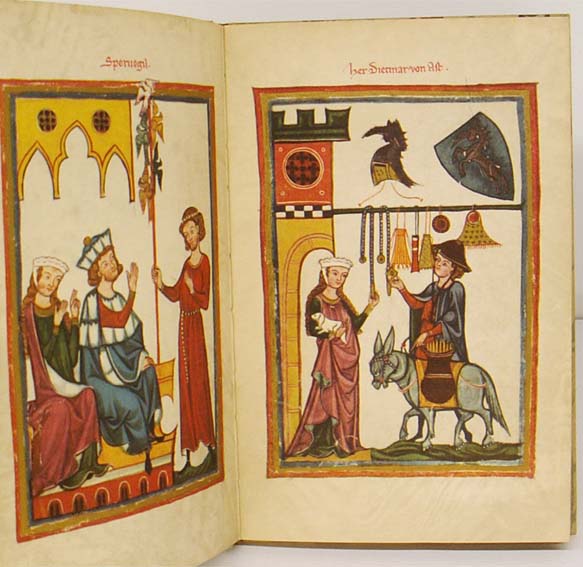 Spervogil.
her Dietmar von Ast.